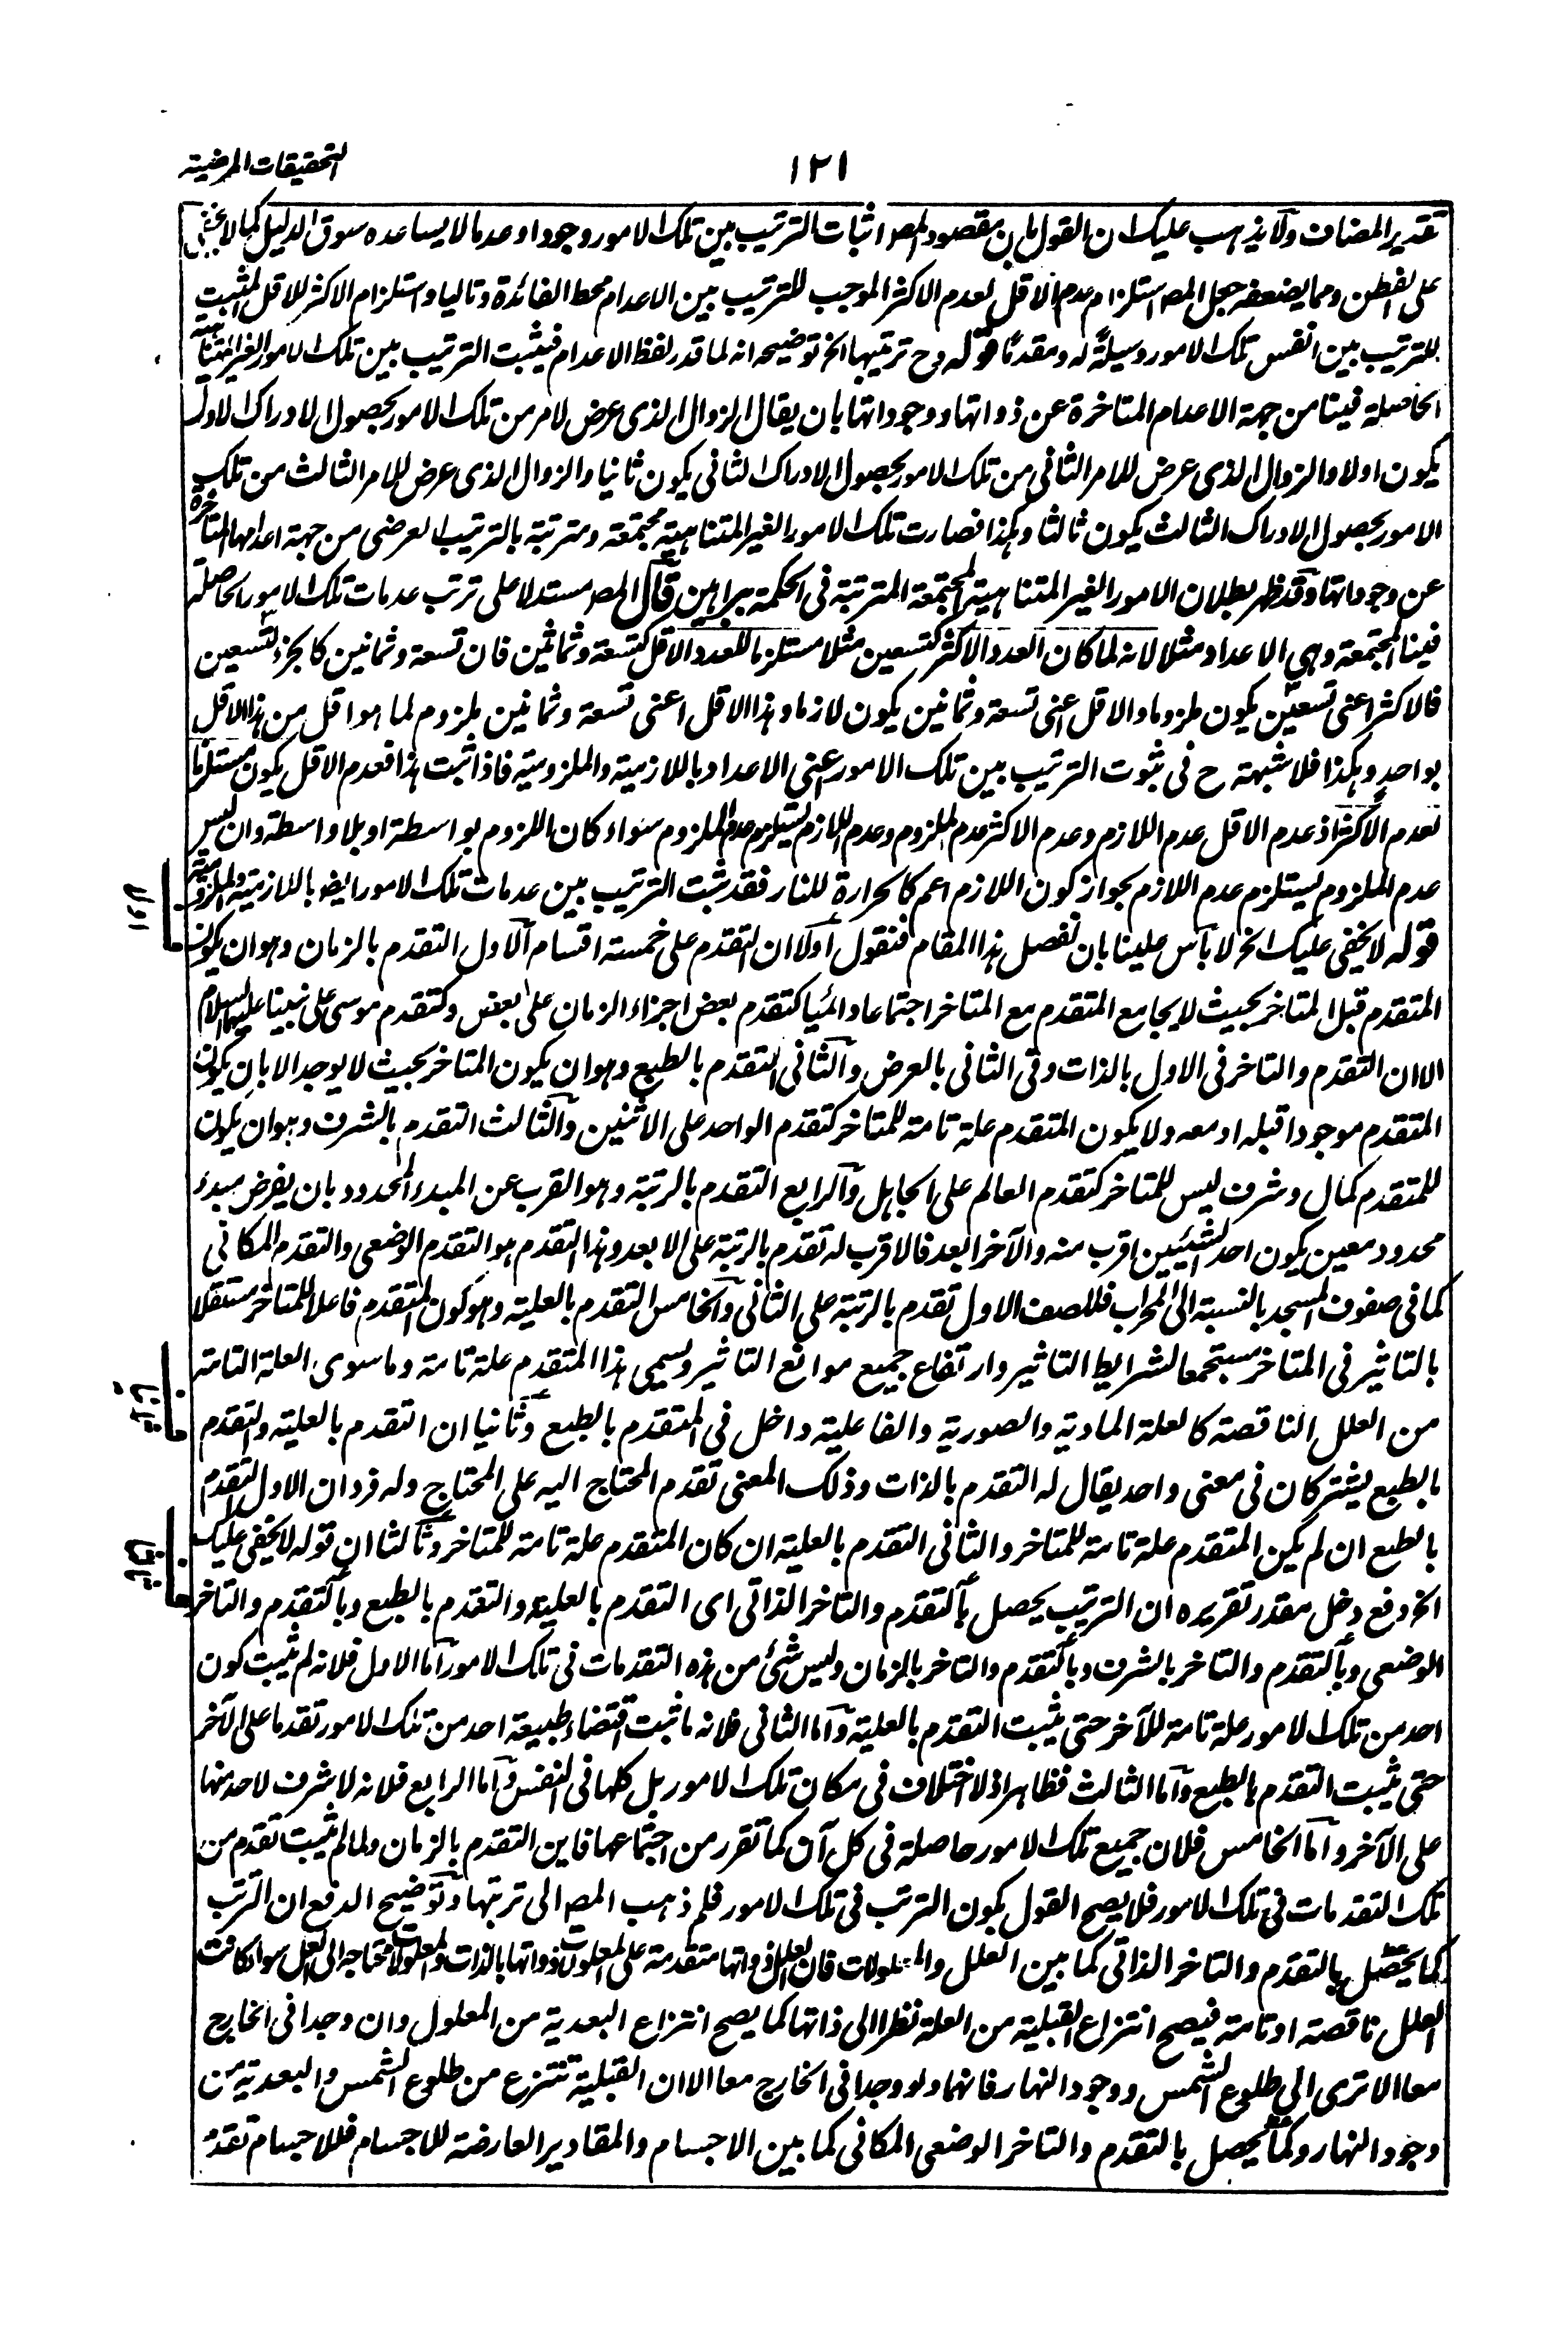 التحقیقات المرضیة
۱۲۱
تقدیر المضاف ولا یذهب علیک ان القول بان مقصود المصـ اثبات الترتیب بین تلک الامور وجودا وعدما لا یساعده سوق الدلیل کما لا یخفی
علی الفطن ومما یضعفه جعل المصـ استلزام عدم الاقل لعدم الاکثر الموجب للترتیب بین الاعدام محط الفائدة وتالیا واستلزام الاکثر للاقل المثبت
للترتیب بین انفس تلک الامور وسیلة له ومقدما قوله وح ترتیبها الخ توضیحه انه لما قدر لفظ الاعدام فیثبت الترتیب بین تلک الامور الغیر المتناهیة
الحاصلة فینا من جهة الاعدام المتاخرة عن ذواتها ووجوداتها بان یقال الزوال الذی عرض لامر من تلک الامور بحصول الادراک الاول
یکون اولا والزوال الذی عرض للامر الثانی من تلک الامور بحصول الادراک الثانی یکون ثانیا والزوال الذی عرض للامر الثالث من تلک
الامور بحصول الادراک الثالث یکون ثالثا وهکذا فصارت تلک الامور الغیر المتناهیة مجتمعة ومترتبة بالترتیب العرضی من جهة اعدامها المتاخرة
عن وجوداتها وقد ظهر بطلان الامور الغیر المتناهیة المجتمعة المترتبة فی الحکمة ببراهین قال المصـ مستدلا علی ترتب عدمات تلک الامور الحاصلة
فینا المجتمعة وهی الاعداد مثلا لانه لما کان العدد الاکثر کتسعین مثلا مستلزما للعدد الاقل کتسعة وثمانین فان تسعة وثمانین کالجزء لتسعین
فالاکثر اعنی تسعین یکون ملزوما والاقل اعنی تسعة وثمانین یکون لازما وهذا الاقل اعنی تسعة وثمانین ملزوم لما هو اقل من هذا الاقل
بواحد وهکذا فلا شبهة ح فی ثبوت الترتیب بین تلک الامور اعنی الاعداد باللازمیة والملزومیة فاذا ثبت هذا فعدم الاقل یکون مستلزما
لعدم الاکثر اذ عدم الاقل عدم اللازم وعدم الاکثر عدم الملزوم وعدم اللازم یستلزم عدم الملزوم سواء کان اللزوم بواسطة او بلا واسطة وان لیس
عدم الملزوم یستلزم عدم اللازم بجواز کون اللازم اعم کالحرارة للنار فقد ثبت الترتیب بین عدمات تلک الامور ایضا باللازمیة والملزومیة
قوله لا یخفی علیک الخ لا باس علینا بان نفصل هذا المقام فنقول اولا ان التقدم علی خمسة اقسام الاول التقدم بالزمان وهو ان یکون
المتقدم قبل المتاخر بحیث لا یجامع المتقدم مع المتاخر اجتماعا دائمیا کتقدم بعض اجزاء الزمان علی بعض وکتقدم موسی علی نبینا علیهما السلام
الا ان التقدم والتاخر فی الاول بالذات وفی الثانی بالعرض والثانی التقدم بالطبع وهو ان یکون المتاخر بحیث لا یوجد الا بان یکون
المتقدم موجودا قبله او معه ولا یکون المتقدم علة تامة للمتاخر کتقدم الواحد علی الاثنین والثالث التقدم بالشرف وهو ان یکون
للمتقدم کمال وشرف لیس للمتاخر کتقدم العالم علی الجاهل والرابع التقدم بالرتبة وهو القرب عن المبدء المحدود بان یفرض مبدء
محدود معین یکون احد الشیئین اقرب منه والآخر ابعد فالاقرب له تقدم بالرتبة علی الابعد وهذا التقدم هو التقدم الوضعی والتقدم المکانی
کما فی صفوف المسجد بالنسبة الی المحراب فللصف الاول تقدم بالرتبة علی الثانی والخامس التقدم بالعلیة وهو کون المتقدم فاعلا للمتاخر مستقلا
بالتاثیر فی المتاخر مستجمعا لشرایط التاثیر وارتفاع جمیع موانع التاثیر ویسمی هذا المتقدم علة تامة وما سوی العلة التامة
من العلل الناقصة کالعلة المادیة والصوریة والفاعلیة داخل فی المتقدم بالطبع وثانیا ان التقدم بالعلیة والتقدم
بالطبع یشترکان فی معنی واحد یقال له التقدم بالذات وذلک المعنی تقدم المحتاج الیه علی المحتاج وله فردان الاول التقدم
بالطبع ان لم یکن المتقدم علة تامة للمتاخر والثانی التقدم بالعلیة ان کان المتقدم علة تامة للمتاخر وثالثا ان قوله لا یخفی علیک
الخ دفع دخل مقدر تقریره ان الترتیب یحصل بالتقدم والتاخر الذاتی ای التقدم بالعلیة والتقدم بالطبع وبالتقدم والتاخر
الوضعی وبالتقدم والتاخر بالشرف وبالتقدم والتاخر بالزمان ولیس شئ من هذه التقدمات فی تلک الامور اما الاول فلانه لم یثبت کون
احد من تلک الامور علة تامة للآخر حتی یثبت التقدم بالعلیة واما الثانی فلانه ما ثبت اقتضاء طبیعة احد من تلک الامور تقدما علی الآخر
حتی یثبت التقدم بالطبع واما الثالث فظاهر اذ لا اختلاف فی مکان تلک الامور بل کلها فی النفس واما الرابع فلانه لا شرف لاحد منها
علی الآخر واما الخامس فلان جمیع تلک الامور حاصلة فی کل آن کما تقرر من اجتماعها فاین التقدم بالزمان ولما لم یثبت تقدم من
تلک التقدمات فی تلک الامور فلا یصح القول بکون الترتب فی تلک الامور فلم ذهب المصـ الی ترتبها وتوضیح الدفع ان الترتب
کما یحصل بالتقدم والتاخر الذاتی کما بین العلل والمعلولات فان العلل ذواتها متقدمة علی المعلولات ذواتها بالذات والمعلولات محتاجة الی العلل سواء کانت
العلل ناقصة او تامة فیصح انتزاع القبلیة من العلة نظرا الی ذاتها کما یصح انتزاع البعدیة من المعلول وان وجدا فی الخارج
معا الا تری الی طلوع الشمس ووجود النهار فانهما ولو وجدا فی الخارج معا الا ان القبلیة تنتزع من طلوع الشمس والبعدیة من
وجود النهار وکما یحصل بالتقدم والتاخر الوضعی المکانی کما بین الاجسام والمقادیر العارضة للاجسام فللاجسام تقدم
اولا
ثانیا
ثالثا